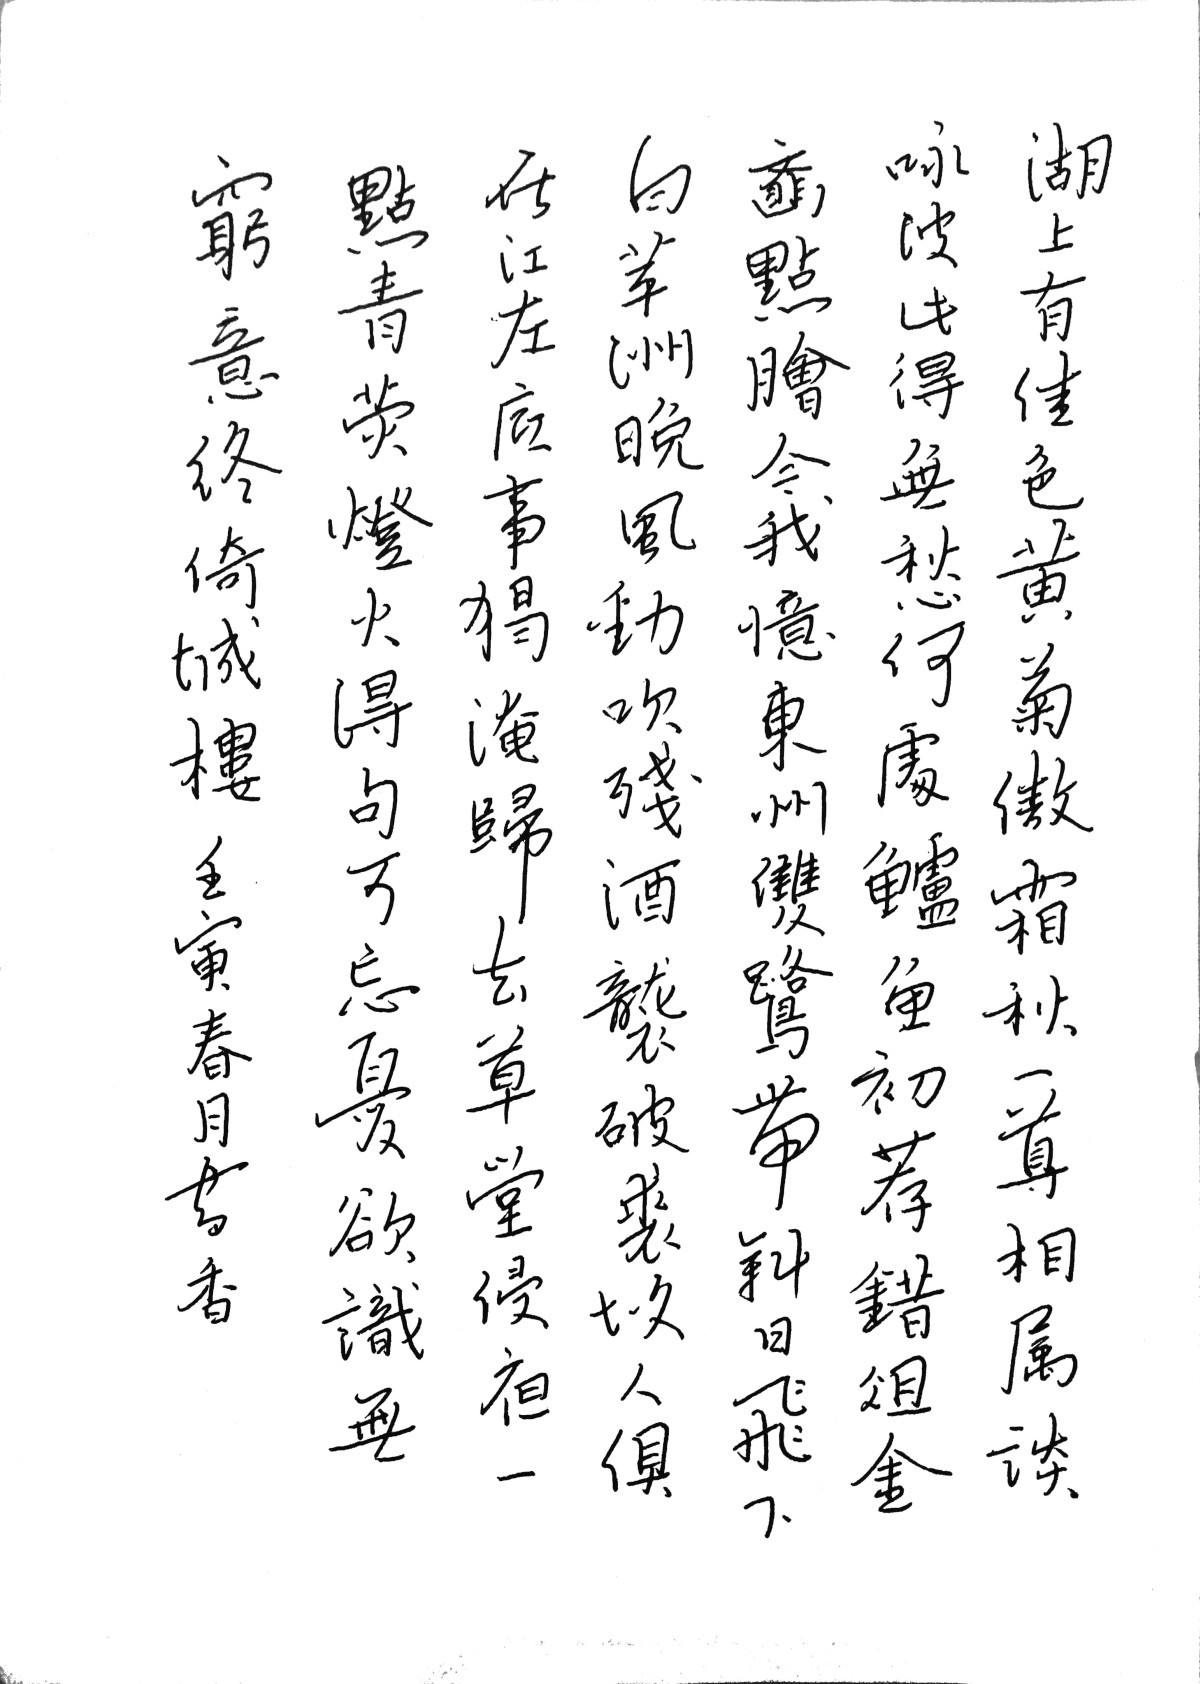 湖上有佳色黄菊傲霜秋一尊相属談
咏彼此得無愁何處鱸魚初荐錯俎金
齏點膾令我憶東州雙鷺帶斜日飛下
白苹洲晚風動吹殘酒襲破裘故人俱
在江左底事獨淹歸去草堂侵夜一
點青荧燈火得句可忘憂欲識無
窮意終倚城樓 壬寅春月書香